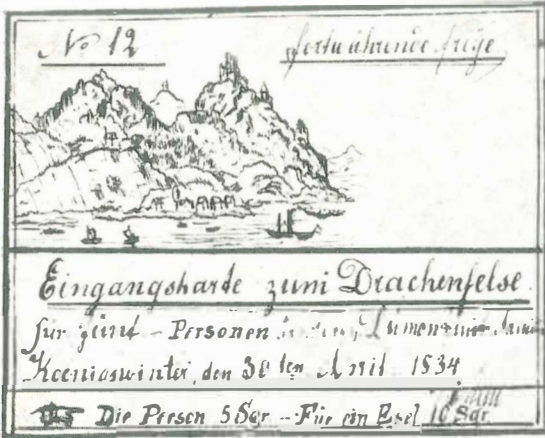 No 12
fortwährende
Eingangskarte zum Drachenfelse.
für fünf - Personen
Koenigswinter, den 30ten April 1834
Die Person 5 Sgr. - Für ein Esel 10 Sgr.